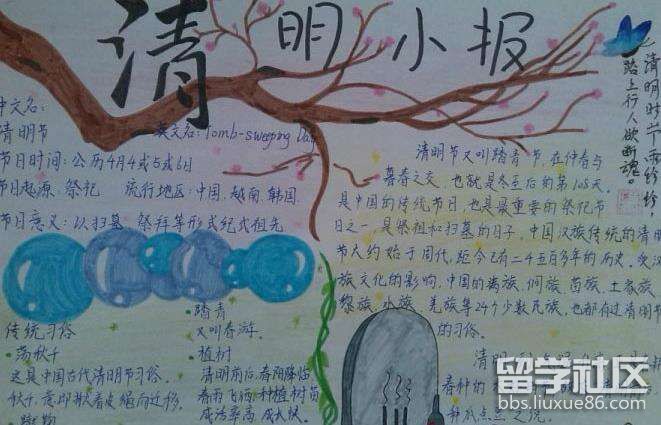 清明小报
清明时节雨纷纷，
路上行人欲断魂。
中文名：
清明节
英文名：Tomb-sweeping Day
节日时间：公历4月4或5或6日
节日起源：祭祀 流行地区：中国、越南、韩国
节日意义：以扫墓、祭拜等形式纪念祖先
传统习俗
·荡秋千
这是中国古代清明节习俗。
秋千，意即揪着皮绳而迁移。
·踏青
又叫春游。
·植树
清明前后，春阳照临
春雨飞洒，种植树苗
成活率高，成长快。
清明节又叫踏青节，在仲春与
暮春之交，也就是冬至后的第108天。
是中国的传统节日，也是最重要的祭祀节
日之一，是祭祖和扫墓的日子。中国汉族传统的清明
节大约始于周代，距今已有二千五百多年的历史。受汉
族文化的影响，中国的满族、侗族、苗族、土家族
黎族、水族、羌族等24个少数民族，也都有过清明节
的习俗。
清明
春种的
种瓜点豆之说。
留学社区
bbs.liuxue86.com